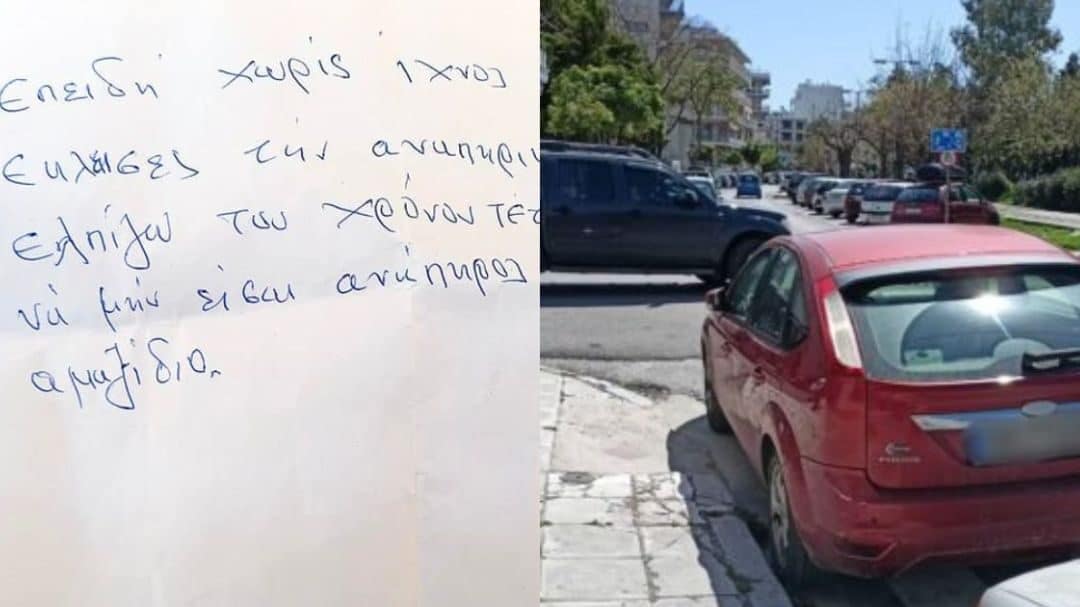 Επειδή χωρίς ίχνος
εκλεισες την αναπηρι
ελπίζω του χρόνου τέτ
νά μην είσαι ανάπηρος
αμαξίδιο.